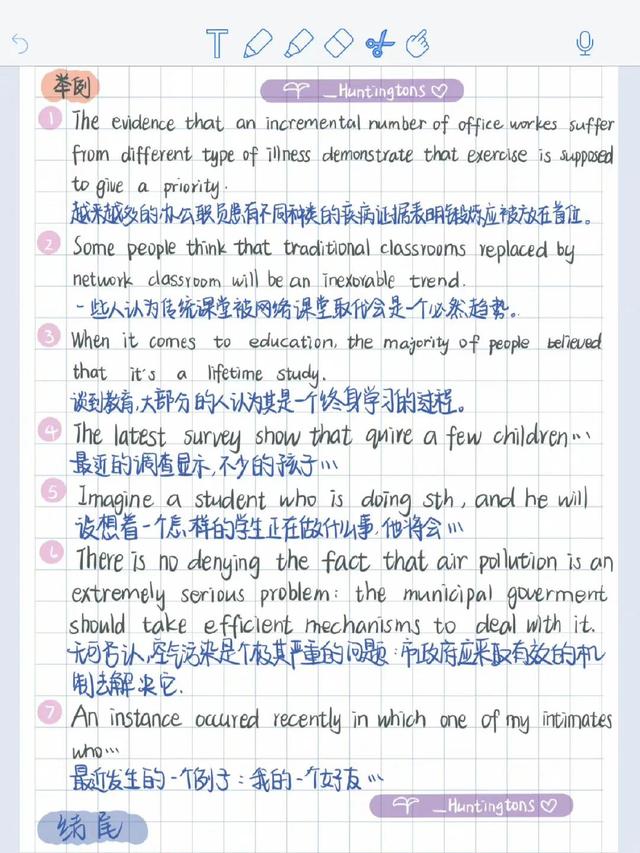 T
举例
_Huntingtons
1 The evidence that an incremental number of office workes suffer
from different type of illness demonstrate that exercise is supposed
to give a priority.
越来越多的办公职员患有不同种类的疾病证据表明锻炼应被放在首位。
2 Some people think that traditional classrooms replaced by
network classroom will be an inexorable trend.
一些人认为传统课堂被网络课堂取代会是一个必然趋势。
3 When it comes to education, the majority of people believed
that it's a lifetime study.
谈到教育,大部分的人认为其是一个终身学习的过程。
4 The latest survey show that quire a few children...
最近的调查显示,不少的孩子...
5 Imagine a student who is doing sth, and he will
设想着一个怎样的学生正在做什么事,他将会...
6 There is no denying the fact that air pollution is an
extremely serious problem: the municipal goverment
should take efficient mechanisms to deal with it.
无可否认,空气污染是个极其严重的问题:市政府应采取有效的机
制去解决它.
7 An instance occured recently in which one of my intimates
who...
最近发生的一个例子:我的一个好友...
_Huntingtons
结尾